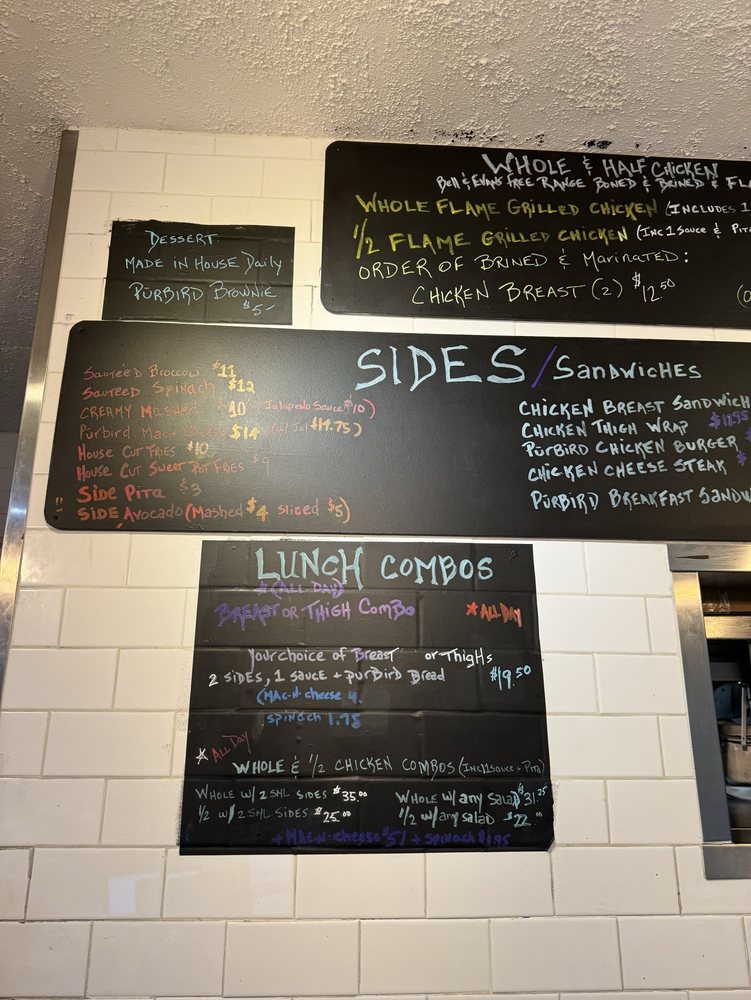 WHOLE & HALF CHICKEN
Bell & Evans Free Range Boned & Brined & Fla
WHOLE FLAME GRILLED CHICKEN (INCLUDES 1
1/2 FLAME GRILLED CHICKEN (Inc 1 Sauce & Pita
ORDER OF BRINED & MARINATED:
CHICKEN BREAST (2) $12.50
DESSERT
MADE IN HOUSE Daily
PURBIRD BROWNIE
$5-
SIDES / SANDWICHES
Sauteed Broccoli $11
Sauteed Spinach $12
CREAMY Mashed $10 (Jalapeño Sauce $10)
Purbird Mac $14 $14.75)
House Cut Fries $10
House Cut Sweet Pot Fries $9
Side Pita $3
SIDE Avocado (Mashed $4 sliced $5)
CHICKEN BREAST SANDWICH
CHICKEN THIGH WRAP $12.95
PURBIRD CHICKEN BURGER $
CHICKEN CHEESE STEAK
PURBIRD BREAKFAST SANDW
LUNCH COMBOS
(ALL DAY)
BREAST OR THIGH COMBO ALL DAY
Your choice of Breast or Thighs
2 SIDES, 1 SAUCE + PURBIRD Bread $19.50
(MAC-N cheese 4.
spinach 1.75
ALL DAY
WHOLE & 1/2 CHICKEN COMBOS (INC 1 Sauce + Pita)
WHOLE W/ 2 SML SIDES $35.00
1/2 W/ 2 SML SIDES $25.00
WHOLE W/ any SALAD $31.25
1/2 w/ any SALAD $22.00
+ MAC-N-cheese $5/ + spinach $1.95